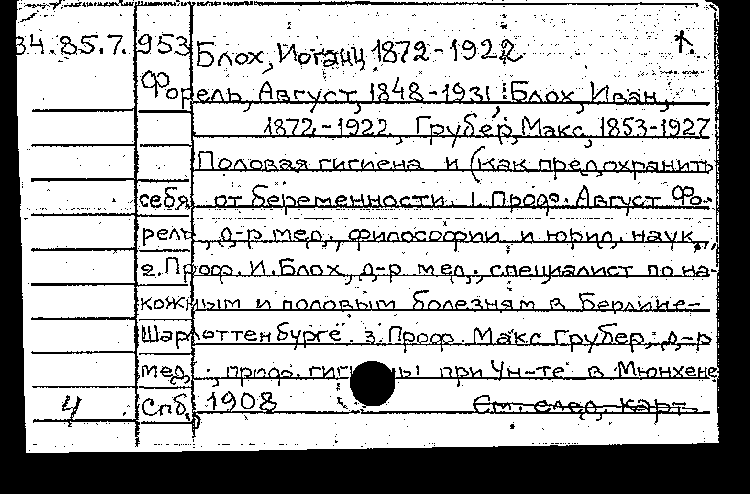 34.85.7. 953 Блох, Иоганн 1872-1922 1.
Форель, Август, 1848-1931, Блох, Иван,
1872-1922, Грубер, Макс, 1853-1927
Половая гигиена и (как предохранить
себя от беременности. 1. Проф. Август Фо-
рель, д-р мед., философии и юрид. наук.,
2. Проф. И. Блох, д-р мед., специалист по на-
кожным и половым болезням в Берлине-
Шарлоттенбурге. 3. Проф. Макс Грубер, д-р
мед., проф. гигиены при Ун-те в Мюнхене
4 Спб, 1908 См. след. карт.